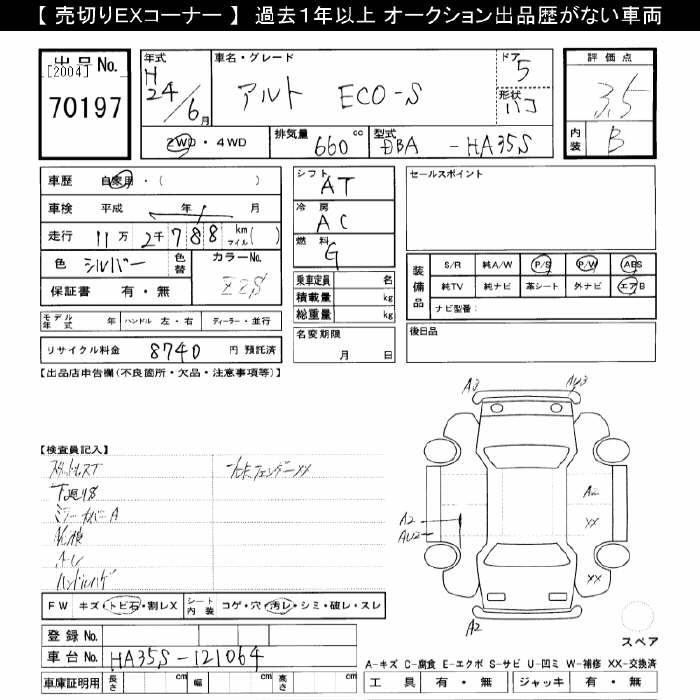 【 売切りEXコーナー 】 過去１年以上 オークション出品歴がない車両
出品 No.
[2004]
70197
年式
H 24/6月
車名・グレード
アルト ECO-S
ドア
5
形状
評価点
3.5
内装
B
2WD・4WD
排気量 660 cc
型式 DBA -HA35S
車歴 自家用・( )
車検 平成 年 月
走行 11万2千788 km マイル( )
色 シルバー 色替 カラーNo. Z2S
保証書 有・無
モデル年式 年 ハンドル 左・右 ディーラー・並行
リサイクル料金 8740 円 預託済
シフト AT
冷房 AC
燃料 G
乗車定員 名
積載量 kg
総重量 kg
名変期限
月 日
セールスポイント
装備品
S/R 純A/W P/S P/W ABS
純TV 純ナビ 革シート 外ナビ エアB
ナビ型番：
後日品
【出品店申告欄(不良箇所・欠品・注意事項等)】
【検査員記入】
スタットレスT
下廻りS
ミラーカバーA
ハンドルハゲ
FW キズ・トビ石・割レX シート内装 コゲ・穴・汚レ・シミ・破レ・スレ
登録 No.
車台 No. HA35S-121064
車庫証明用 長さ cm 幅 cm 高さ cm
A3
AU3
A2
XX
XX
A2
AU2
A2
スペア
A-キズ C-腐食 E-エクボ S-サビ U-凹ミ W-補修 XX-交換済
工具 有・無 ジャッキ 有・無